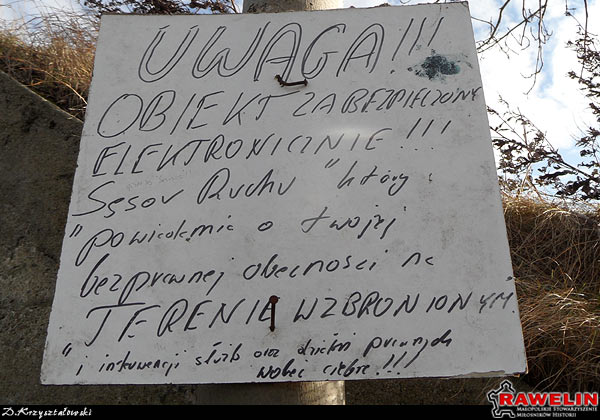 UWAGA!!!
OBIEKT ZABEZPIECZONY
ELEKTRONICZNIE!!!
Sęsov Ruchu "który
"powiadamia o twojej
bezprawnej obecności na
TERENIE WZBRONIONYM"
"i interwencji służb oraz działań prawnych
wobec ciebie!!!
D.Krzysztalowski
RAWELIN
MAŁOPOLSKIE STOWARZYSZENIE
MIŁOŚNIKÓW HISTORII